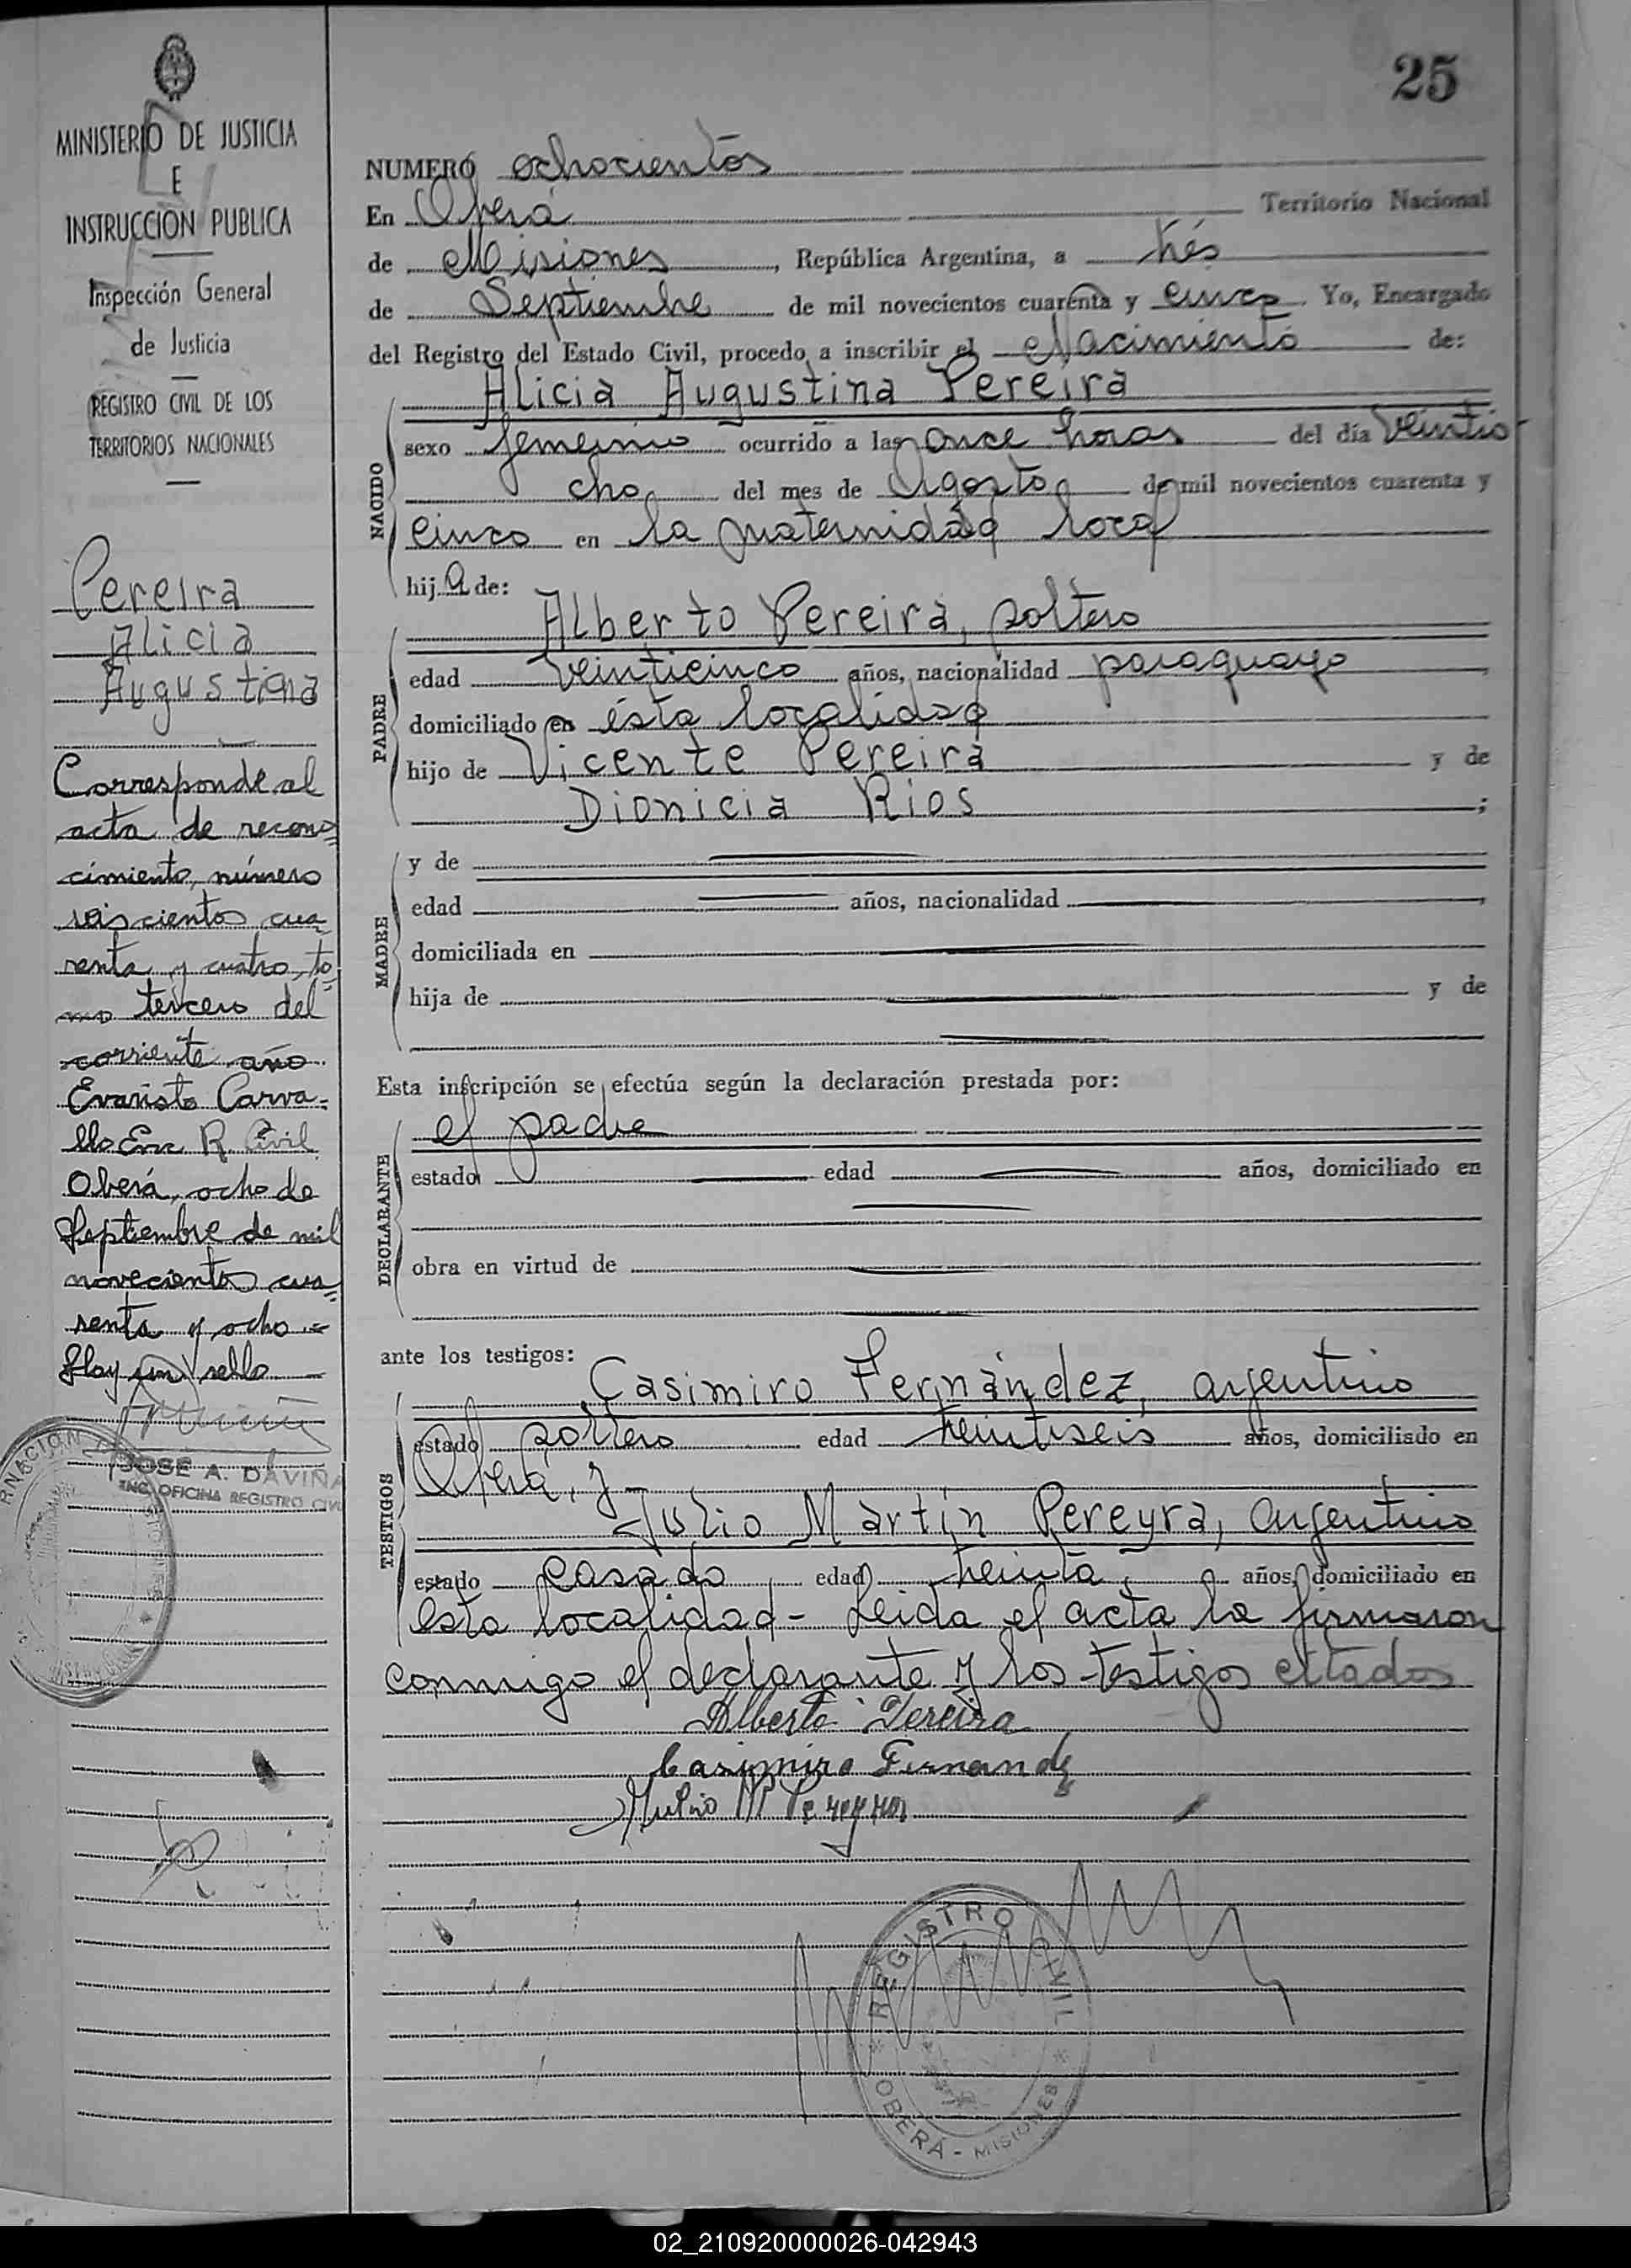 25
MINISTERIO DE JUSTICIA
E
INSTRUCCION PUBLICA
Inspección General
de Justicia
REGISTRO CIVIL DE LOS
TERRITORIOS NACIONALES
Pereira
Alicia
Augustina
Corresponde al
acta de recono=
cimiento, número
seiscientos cua=
renta y cuatro, to=
mo tercero del
corriente año
Evaristo Carva=
llo Enc R. Civil
Oberá, ocho de
Septiembre de mil
novecientos cua=
renta y ocho.=
Hay un sello
JOSÉ A. DAVIÑA
ENC. OFICINA REGISTRO CIVIL
NUMERO ochocientos
En Oberá Territorio Nacional
de Misiones, República Argentina, a trés
de Septiembre de mil novecientos cuarenta y cinco. Yo, Encargado
del Registro del Estado Civil, procedo a inscribir el Nacimiento de:
NACIDO
Alicia Augustina Pereira
sexo femenino ocurrido a las once horas del día veintio-
cho del mes de Agosto de mil novecientos cuarenta y
cinco en la maternidad local
hija de:
PADRE
Alberto Pereira, soltero
edad veinticinco años, nacionalidad paraguayo,
domiciliado en ésta localidad
hijo de Vicente Pereira y de
Dionicia Rios;
MADRE
y de
edad años, nacionalidad,
domiciliada en
hija de y de
Esta inscripción se efectúa según la declaración prestada por:
DECLARANTE
el padre
estado edad años, domiciliado en
obra en virtud de
ante los testigos:
TESTIGOS
Casimiro Fernández, argentino
estado soltero edad treintiseis años, domiciliado en
Oberá, y-
Julio Martín Pereyra, argentino
estado casado edad treinta, años, domiciliado en
esta localidad- Leida el acta la firmaron
conmigo el declarante y los testigos citados
Alberto Pereira
Casimiro Fernandz
Julio M Pereyra
REGISTRO CIVIL
* OBERÁ - MISIONES *
02_210920000026-042943